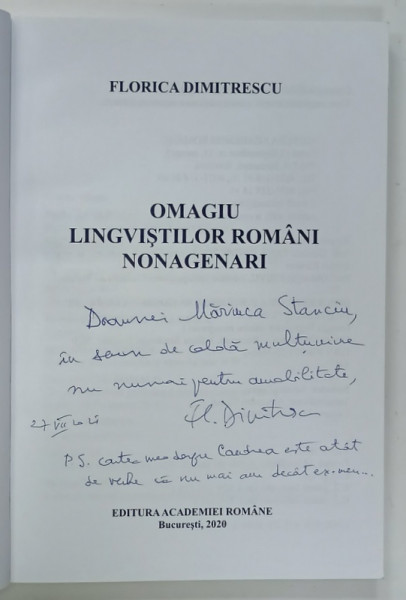 FLORICA DIMITRESCU
OMAGIU
LINGVIȘTILOR ROMÂNI
NONAGENARI
Doamnei Mărinca Stanciu,
în semn de caldă mulțumire
nu numai pentru amabilitate,
Fl. Dimitrescu
27 VII
P.S. cartea mea despre Candrea este atât
de veche că nu mai am decât ex. meu...
EDITURA ACADEMIEI ROMÂNE
București, 2020